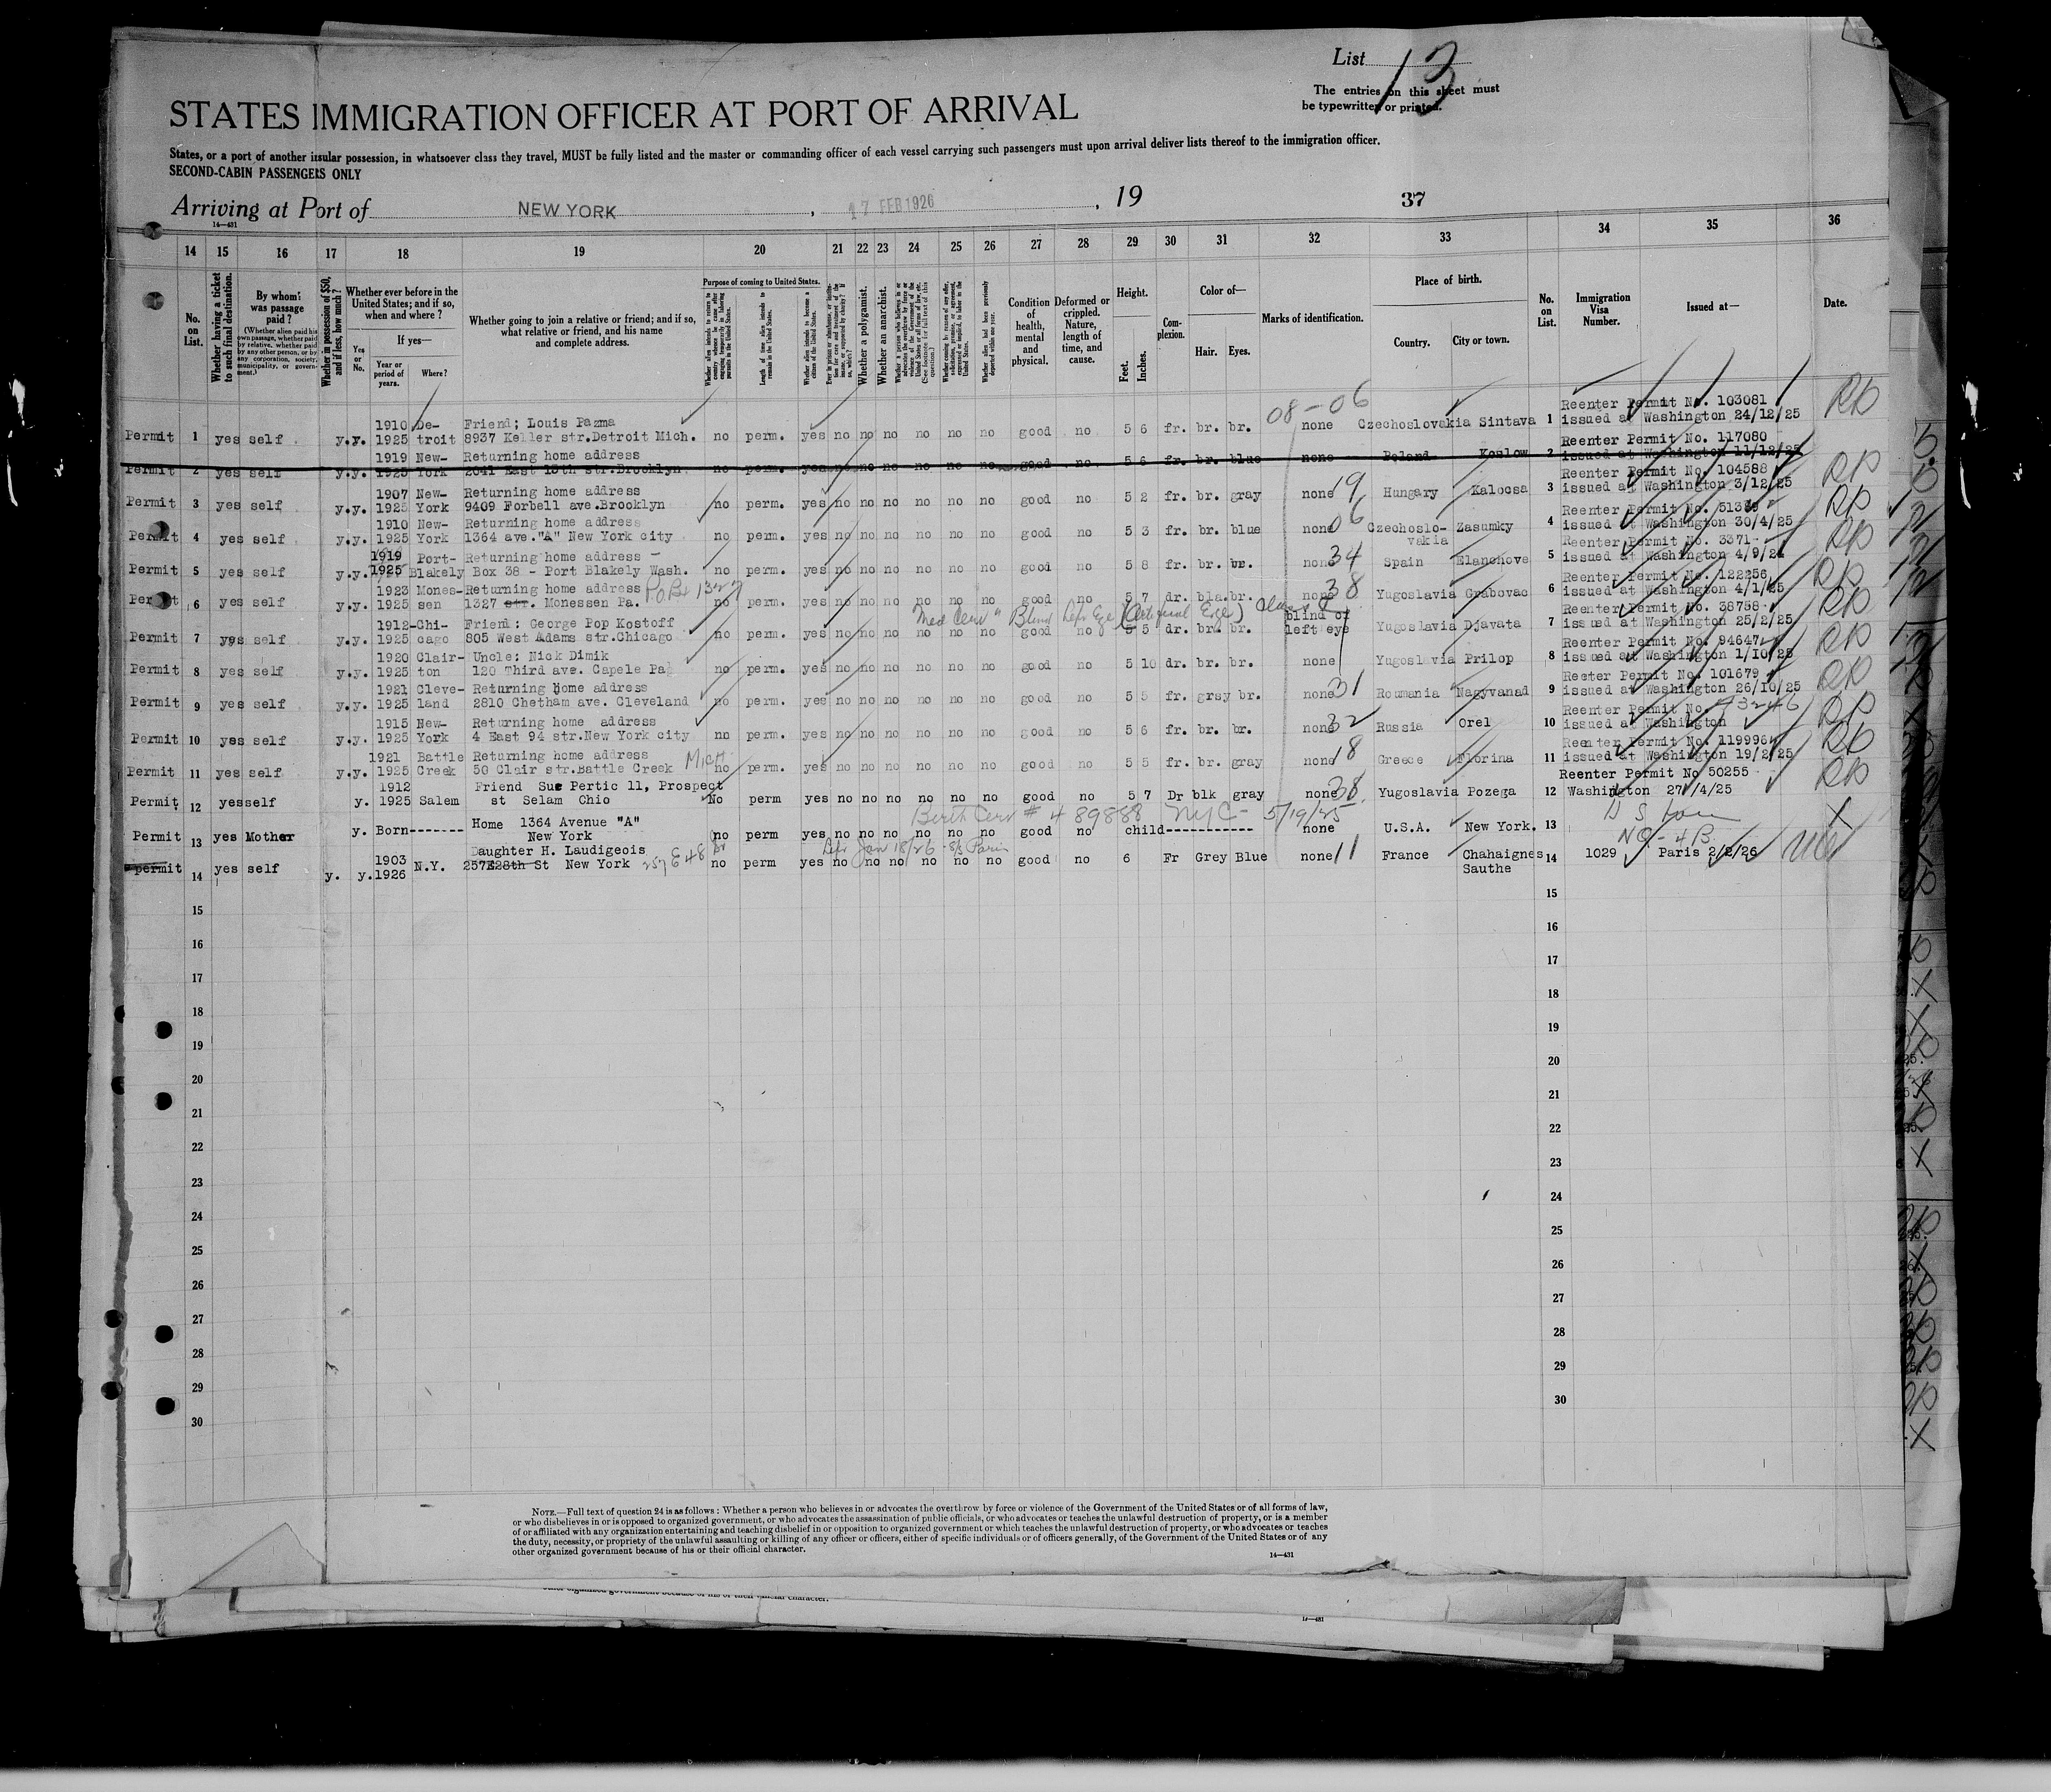 List 13
The entries on this sheet must
be typewritten or printed.
STATES IMMIGRATION OFFICER AT PORT OF ARRIVAL
States, or a port of another insular possession, in whatsoever class they travel, MUST be fully listed and the master or commanding officer of each vessel carrying such passengers must upon arrival deliver lists thereof to the immigration officer.
SECOND-CABIN PASSENGERS ONLY
Arriving at Port of NEW YORK, 17 FEB 1926, 19 37
14—431
14 15 16 17 18 19 20 21 22 23 24 25 26 27 28 29 30 31 32 33 34 35 36
No. on List.
Whether having a ticket to such final destination.
By whom was passage paid?
(Whether alien paid his own passage, whether paid by relative, whether paid by any other person, or by any corporation, society, municipality, or government.)
Whether in possession of $50, and if less, how much?
Whether ever before in the United States; and if so, when and where?
Yes or No.
If yes—
Year or period of years.
Where?
Whether going to join a relative or friend; and if so, what relative or friend, and his name and complete address.
Purpose of coming to United States.
Length of time alien intends to remain in the United States.
Whether alien intends to become a citizen of the United States.
Whether a polygamist.
Whether an anarchist.
Condition of health, mental and physical.
Deformed or crippled. Nature, length of time, and cause.
Height.
Feet. Inches.
Complexion.
Color of—
Hair. Eyes.
Marks of identification.
Place of birth.
Country. City or town.
No. on List.
Immigration Visa Number.
Issued at—
Date.
08-06
1910 De- Friend; Louis Pazma Reenter Permit No. 103081
Permit 1 yes self y.y. 1925 troit 8937 Keller str.Detroit Mich. no perm. yes no no no no no no good no 5 6 fr. br. br. none Czechoslovakia Sintava 1 issued at Washington 24/12/25
1919 New- Returning home address Reenter Permit No. 117080
Permit 2 yes self y.y. 1925 York 2041 East 15th str.Brooklyn no perm. yes no no no no no no good no 5 6 fr. br. blue none Poland Koslow 2 issued at Washington 11/12/25
1907 New- Returning home address Reenter Permit No. 104588
Permit 3 yes self y.y. 1925 York 9409 Forbell ave.Brooklyn no perm. yes no no no no no no good no 5 2 fr. br. gray none 19 Hungary Kalocsa 3 issued at Washington 3/12/25
1910 New- Returning home address Reenter Permit No.
Permit 4 yes self y.y. 1925 York 1364 ave."A" New York city no perm. yes no no no no no no good no 5 3 fr. br. blue none 06 Czechoslo- vakia Zasumky 4 issued at Washington 30/4/25
1919 Port- Returning home address - Reenter Permit No. 3371
Permit 5 yes self y.y. 1925 Blakely Box 38 - Port Blakely Wash. no perm. yes no no no no no no good no 5 8 fr. br. br. none 34 Spain Elanchove 5 issued at Washington
1923 Mones- Returning home address P.O.Bx 1327 Reenter Permit No. 122256
Permit 6 yes self y.y. 1925 sen 1327 str. Monessen Pa. no perm. yes no no no no no no good no 5 7 dr. bla.br. none 38 Yugoslavia Grabovac 6 issued at Washington 4/1/25
Med Cert Blind Left Eye (Artificial Eye)
1912-Chi- Friend: George Pop Kostoff blind of Reenter Permit No. 38758
Permit 7 yes self y.y. 1925 cago 805 West Adams str.Chicago no perm. yes no no no no no no good no 5 5 dr. br. br. left eye Yugoslavia Djavata 7 issued at Washington 25/2/25
1920 Clair- Uncle: Nick Dimik Reenter Permit No. 94647
Permit 8 yes self y.y. 1925 ton 120 Third ave. Capele Pa no perm. yes no no no no no no good no 5 10 dr. br. br. none Yugoslavia Prilop 8 issued at Washington 1/10/25
1921 Cleve- Returning home address Reeter Permit No. 101679
Permit 9 yes self y.y. 1925 land 2810 Chetham ave. Cleveland no perm. yes no no no no no no good no 5 5 fr. gray br. none 31 Roumania Nagyvanad 9 issued at Washington 26/10/25
1915 New- Returning home address Reenter Permit No. 73246
Permit 10 yes self y.y. 1925 York 4 East 94 str.New York city no perm. yes no no no no no no good no 5 6 fr. br. br. none 32 Russia Orel 10 issued at Washington
1921 Battle Returning home address Mich Reenter Permit No. 119996
Permit 11 yes self y.y. 1925 Creek 50 Clair str.Battle Creek no perm. yes no no no no no no good no 5 5 fr. br. gray none 18 Greece Florina 11 issued at Washington 19/2/25
1912 Friend Sue Pertic 11, Prospect Reenter Permit No 50255
Permit 12 yesself y. 1925 Salem st Selam Ohio No perm yes no no no no no no good no 5 7 Dr blk gray none 38 Yugoslavia Pozega 12 Washington 27/4/25
Birth Cert # 489888 NYC - 5/19/25
Home 1364 Avenue "A"
Permit 13 yes Mother y. Born------- New York no perm yes no no no no no no good no child------------ none U.S.A. New York. 13
Daughter H. Laudigeois Left Jan 18/26 S/S Paris NQ-4B
permit 14 yes self y. y. 1903 1926 N.Y. 257E28th St New York 257 E 48 no perm yes no no no no no no good no 6 Fr Grey Blue none 11 France Chahaignes Sauthe 14 1029 Paris 2/2/26
15 15
16 16
17 17
18 18
19 19
20 20
21 21
22 22
23 23
24 24
25 25
26 26
27 27
28 28
29 29
30 30
NOTE.—Full text of question 24 is as follows: Whether a person who believes in or advocates the overthrow by force or violence of the Government of the United States or of all forms of law,
or who disbelieves in or is opposed to organized government, or who advocates the assassination of public officials, or who advocates or teaches the unlawful destruction of property, or is a member
of or affiliated with any organization entertaining and teaching disbelief in or opposition to organized government or which teaches the unlawful destruction of property, or who advocates or teaches
the duty, necessity, or propriety of the unlawful assaulting or killing of any officer or officers, either of specific individuals or of officers generally, of the Government of the United States or of any
other organized government because of his or their official character.
14—431